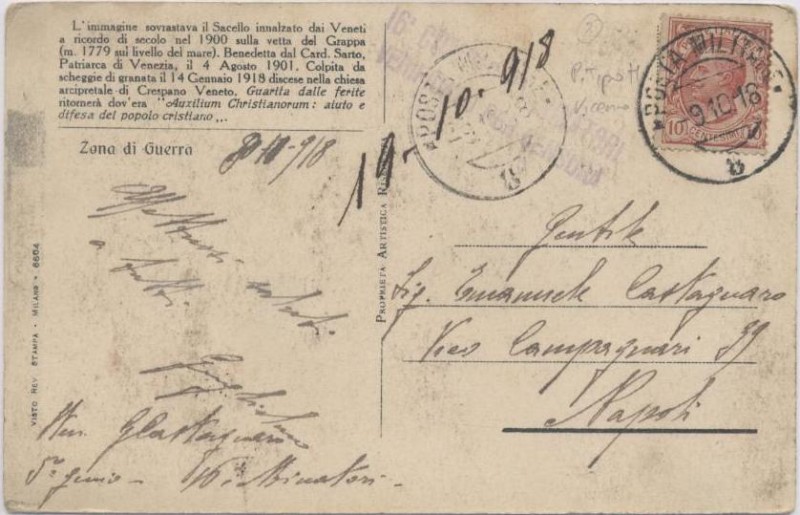 L'immagine sovrastava il Sacello innalzato dai Veneti
a ricordo di secolo nel 1900 sulla vetta del Grappa
(m. 1779 sul livello del mare). Benedetta dal Card. Sarto,
Patriarca di Venezia, il 4 Agosto 1901. Colpita da
scheggie di granata il 14 Gennaio 1918 discese nella chiesa
arcipretale di Crespano Veneto. Guarita dalle ferite
ritornerà dov'era "Auxilium Christianorum: aiuto e
difesa del popolo cristiano„.
Zona di Guerra
-918
a tutti
5° genio - 16. Minatori -
VISTO REV. STAMPA - MILANO - 6664
PROPRIETÀ ARTISTICA
10 - 918
POSTA MILITARE
8
P. Tipo H
10 CENTESIMI 10
POSTA MILITARE
9.10.18
8
Gentile
Sig. Emanuele Castagnaro
Vico Campagnari 39
Napoli